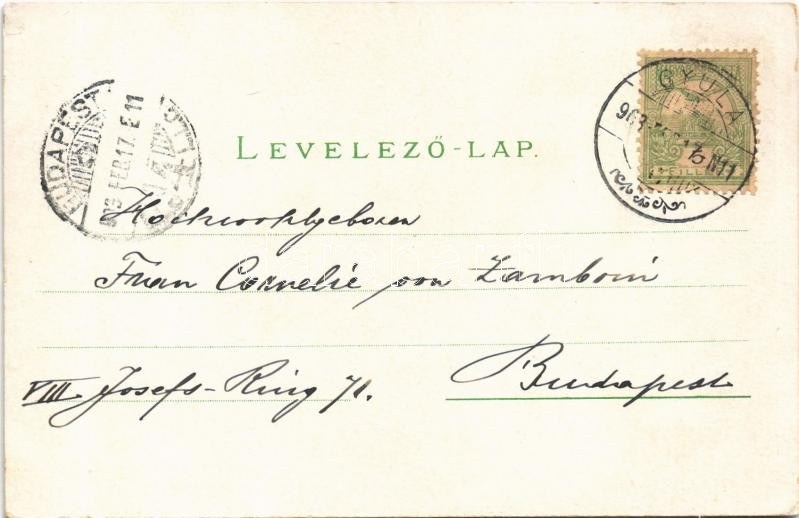 LEVELEZŐ-LAP.
BUDAPEST
903 FEB. 17. E 11
GYULA
FILLÉR
Hochwohlgeboren
Frau Cornelie von Zamboni
VIII Josefs-Ring 71.
Budapest